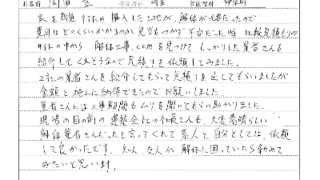 家を新築するため購入した土地が解体が必要だったので
費用はどのくらいかかるのか見当もつかず不安だった時 比較見積もりの
サイトの中から 解体工事.comを見つけて しっかりした業者さんを
紹介してくれそうなので見積りを依頼してみました。
2社の業者さんを紹介してもらって見積りを出してもらいましたが
金額と施工に納得できましたのでお願いしました。
業者さんには工事期間もムリを聞いてもらい助かりました。
現場の目の前の建築会社の社長さんも 大変素晴らしい
解体業者さんだったと言ってくれて 素人の自分としては、依頼
して良かったです。知人 友人が解体に困っていたら勧めて
みたいと思います。